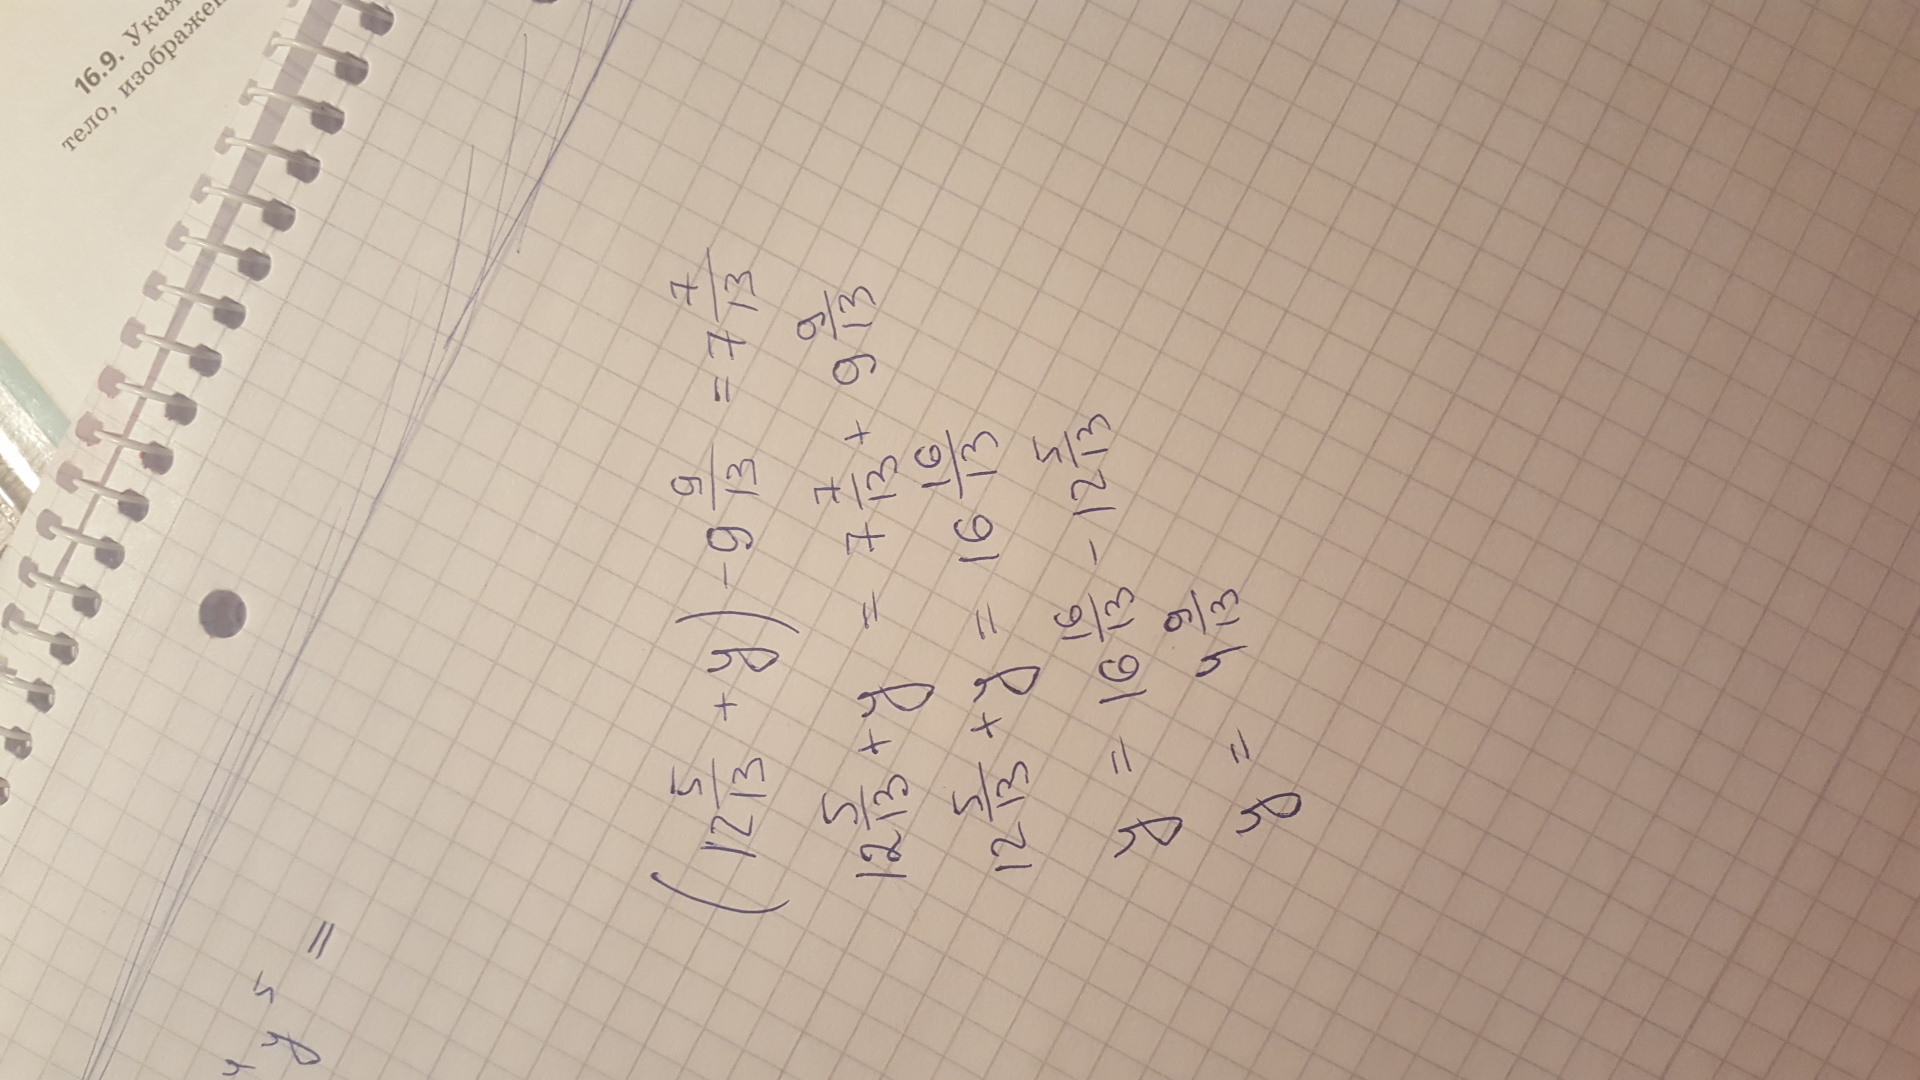 16.9. Ука
тело, изображен
(12 5/13 + y) - 9 9/13 = 7 7/13
12 5/13 + y = 7 7/13 + 9 9/13
12 5/13 + y = 16 16/13
y = 16 16/13 - 12 5/13
y = 4 9/13
y 5 =